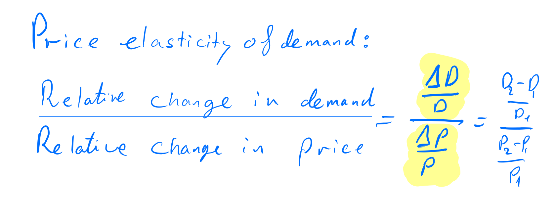 Price elasticity of demand:
Relative change in demand / Relative change in price = (ΔD/D) / (ΔP/P) = ((D₂-D₁)/D₁) / ((P₂-P₁)/P₁)